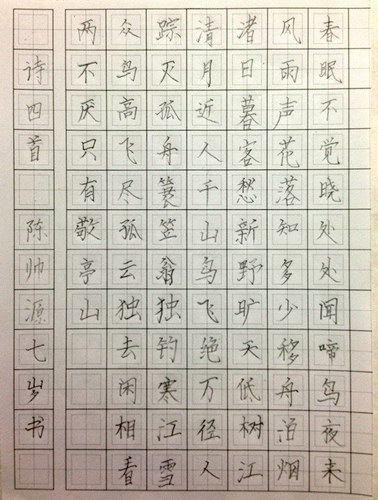 春眠不觉晓处处闻啼鸟夜来
风雨声花落知多少移舟泊烟
渚日暮客愁新野旷天低树江
清月近人千山鸟飞绝万径人
踪灭孤舟蓑笠翁独钓寒江雪
众鸟高飞尽孤云独去闲相看
两不厌只有敬亭山
诗四首 陈帅源七岁书